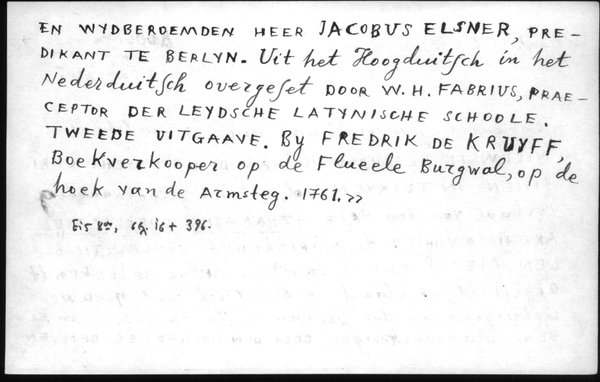 EN WYDBEROEMDEN HEER JACOBUS ELSNER, PRE-
DIKANT TE BERLYN. Uit het Hoogduitsch in het
Nederduitsch overgeset DOOR W. H. FABRIUS, PRAE-
CEPTOR DER LEYDSCHE LATYNISCHE SCHOOLE.
TWEEDE UITGAAVE. By FREDRIK DE KRUYFF,
Boekverkooper op de Flueele Burgwal, op de
hoek van de Armsteg. 1761.»
8ᵒ, 16 + 396.